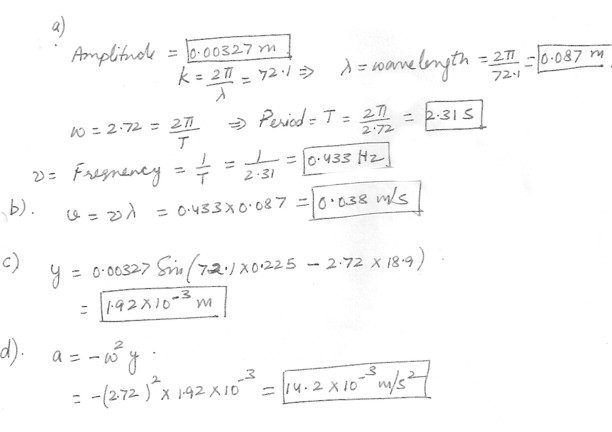 a)
Amplitude = 0.00327 m
k = 2π/λ = 72.1 ⇒ λ = wavelength = 2π/72.1 = 0.087 m
ω = 2.72 = 2π/T ⇒ Period = T = 2π/2.72 = 2.31 S
ν = Frequency = 1/T = 1/2.31 = 0.433 Hz
b). v = νλ = 0.433 x 0.087 = 0.038 m/s
c) y = 0.00327 Sin(72.1 x 0.225 - 2.72 x 18.9)
= 1.92 x 10⁻³ m
d). a = -ω² y.
= -(2.72)² x 1.92 x 10⁻³ = 14.2 x 10⁻³ m/s²